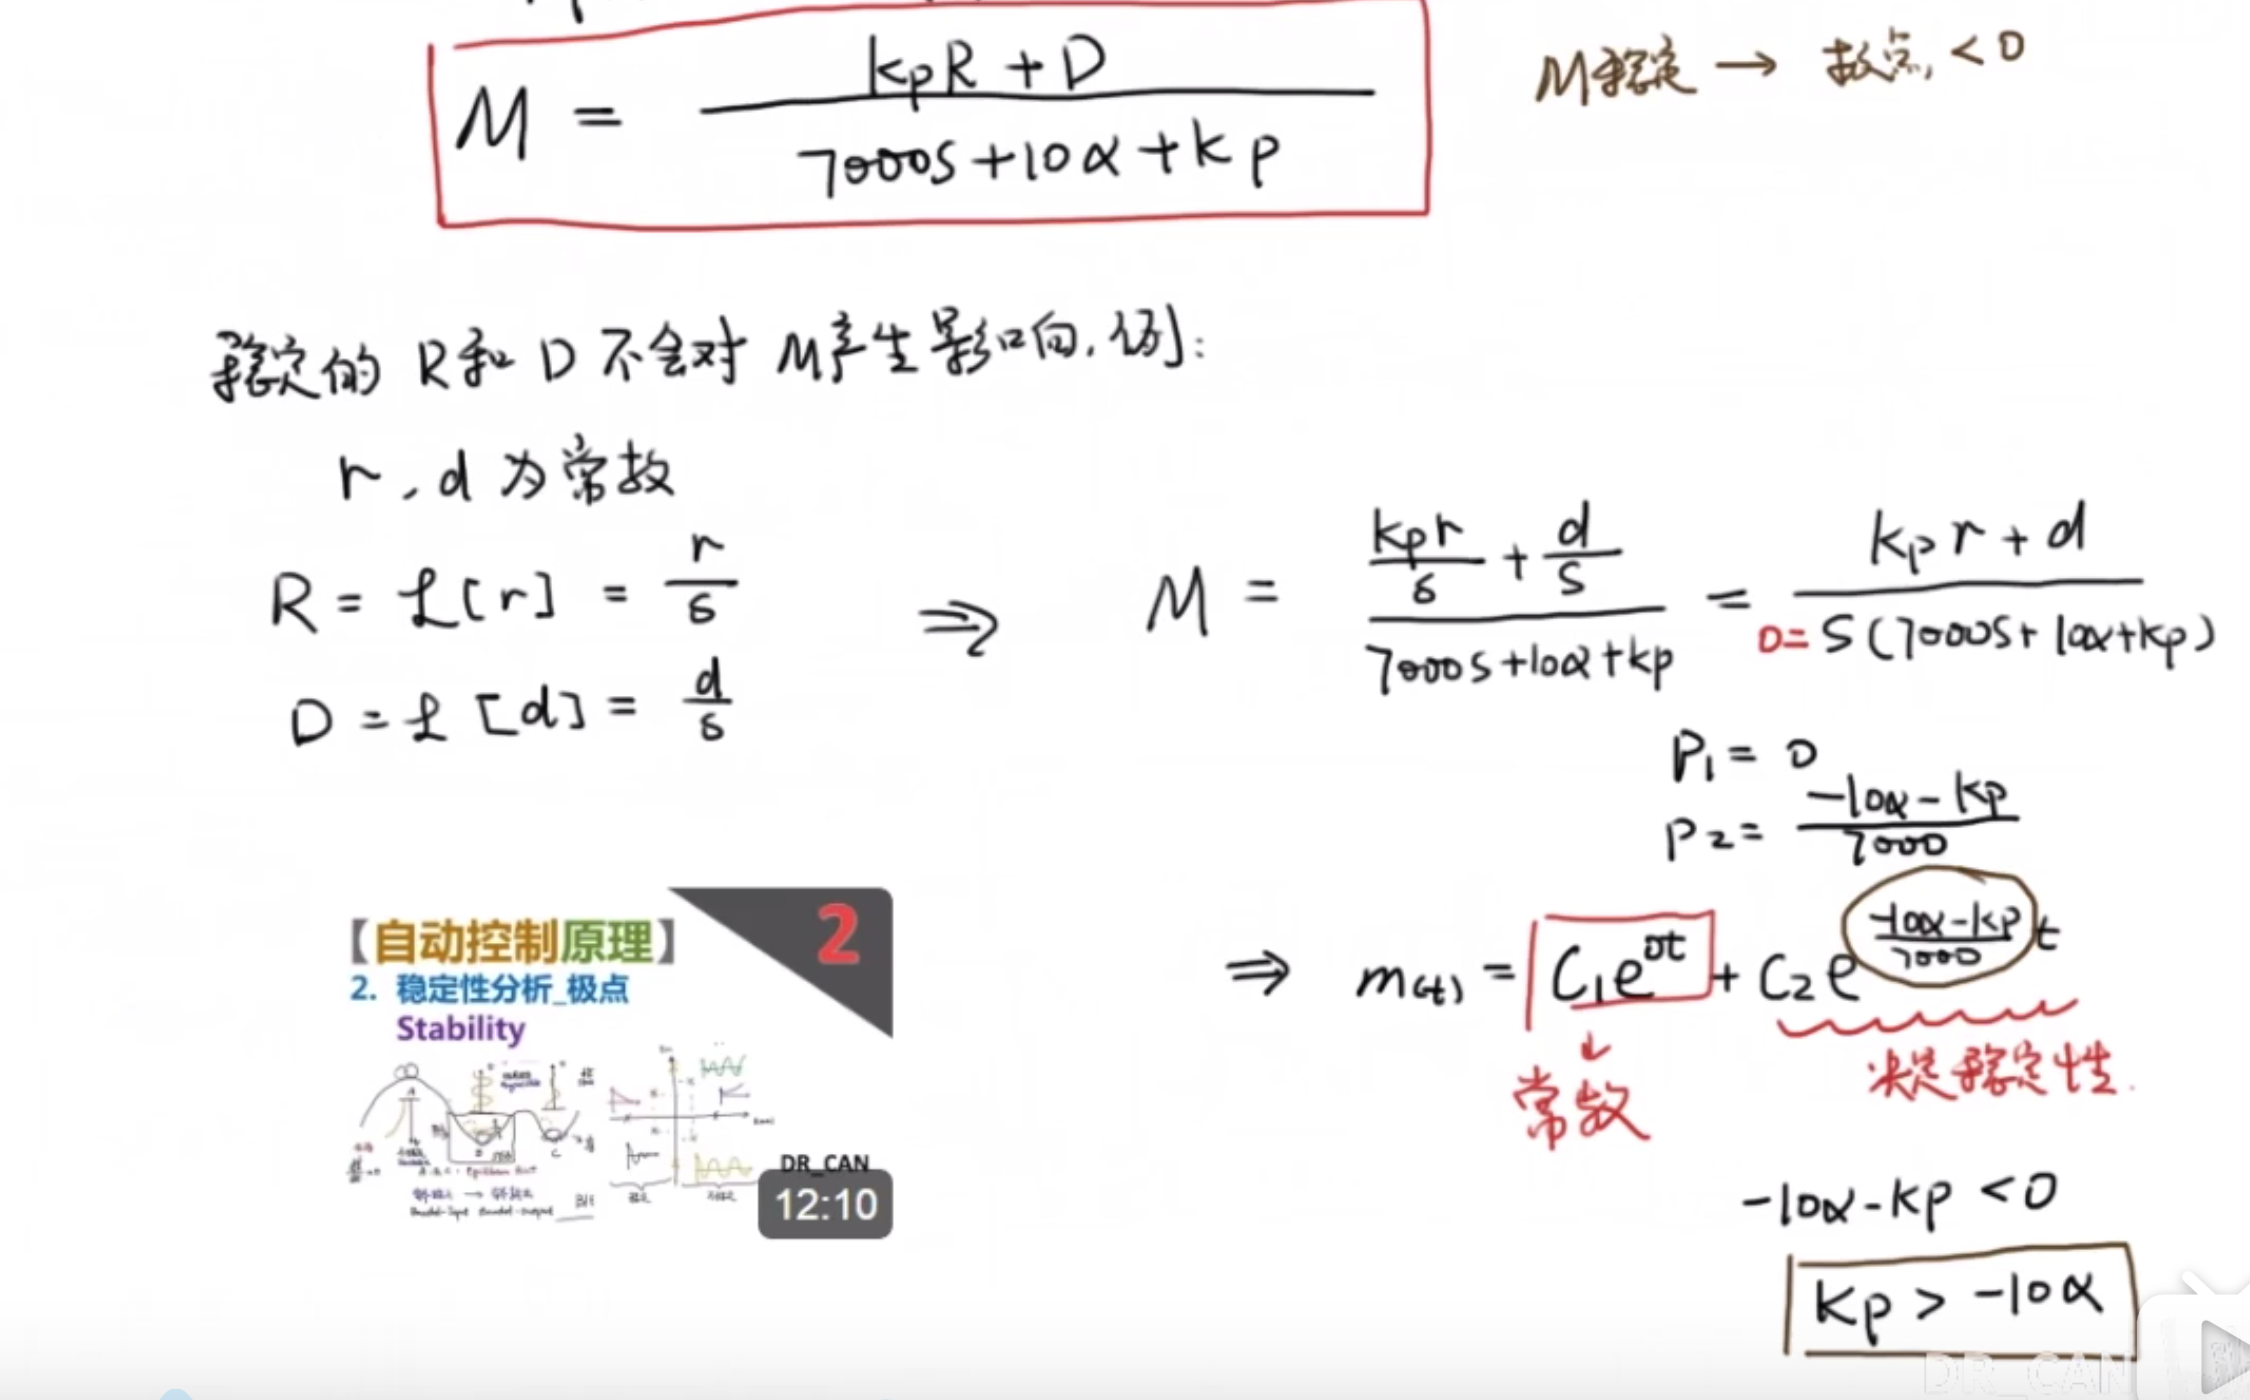 M = (kpR + D) / (7000s + 10α + kp)
M稳定 → 极点 < 0
稳定的 R和 D 不会对 M产生影响. 例:
r, d 为常数
R = ℒ[r] = r/s
D = ℒ[d] = d/s
⇒ M = (kpr/s + d/s) / (7000s+10α+kp) = (kpr + d) / (s(7000s+10α+kp))
0=
P1 = 0
P2 = (-10α-kp) / 7000
⇒ m(t) = C1e^(0t) + C2e^((-10α-kp)/7000 t)
↓
常数
决定稳定性.
-10α-kp < 0
kp > -10α
【自动控制原理】
2
2. 稳定性分析_极点
Stability
DR_CAN
12:10
DR_CAN